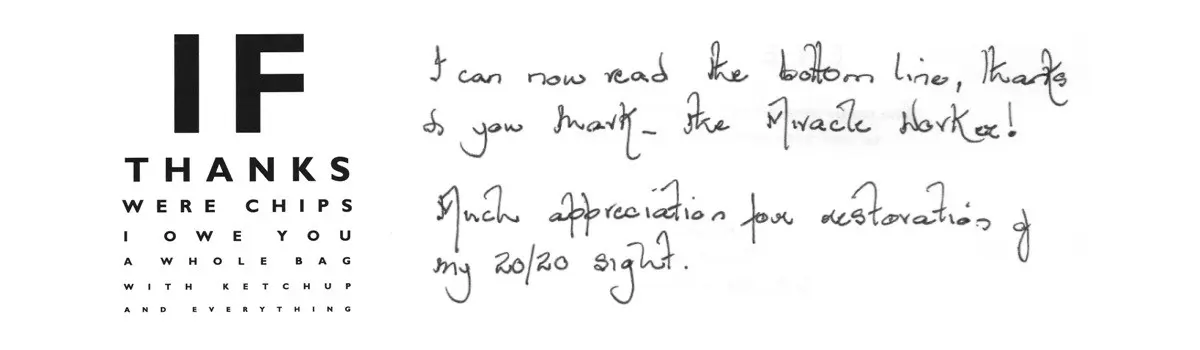 IF
THANKS
WERE CHIPS
I OWE YOU
A WHOLE BAG
WITH KETCHUP
AND EVERYTHING
I can now read the bottom line, thanks
to you Mark - the Miracle Worker!
Much appreciation for restoration of
my 20/20 sight.